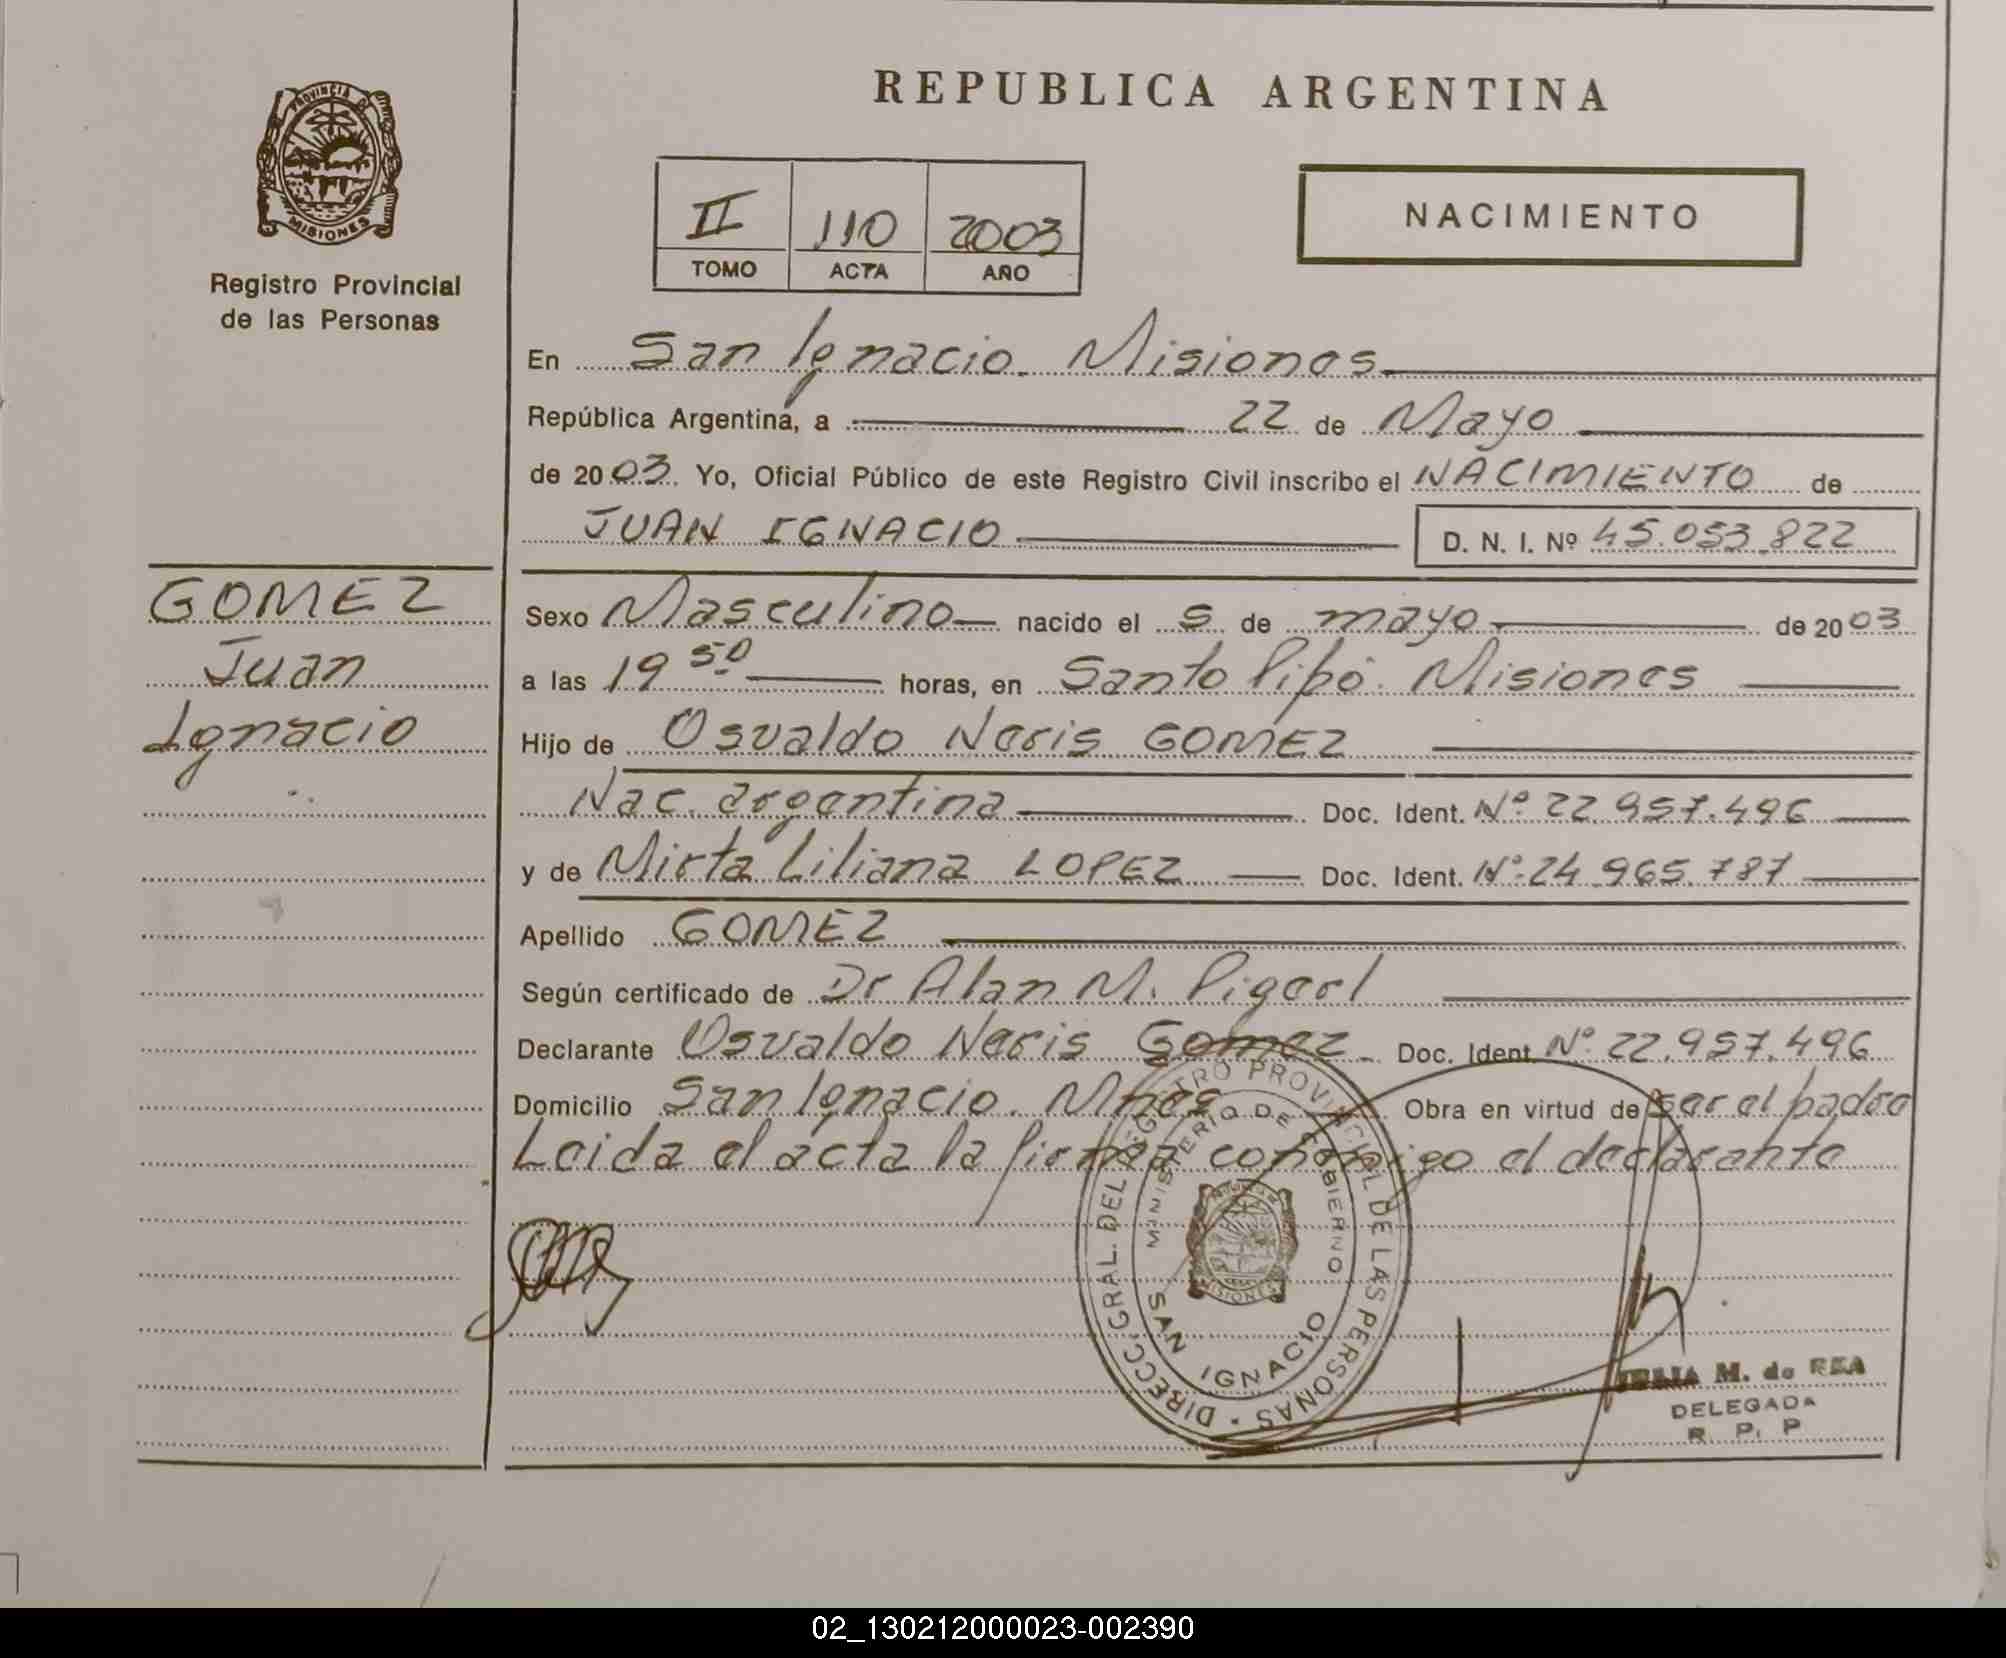 PROVINCIA D
MISIONES
Registro Provincial
de las Personas
REPUBLICA ARGENTINA
II 110 2003
TOMO ACTA AÑO
NACIMIENTO
En San Ignacio. Misiones
República Argentina, a 22 de Mayo
de 2003. Yo, Oficial Público de este Registro Civil inscribo el NACIMIENTO de
JUAN IGNACIO D. N. I. Nº 45.053.822
GOMEZ
Juan
Ignacio
Sexo Masculino nacido el 5 de mayo de 2003
a las 19 50 horas, en Santo Pipó. Misiones
Hijo de Osvaldo Neris GOMEZ
Nac. argentina Doc. Ident. Nº 22.957.496
y de Mirta Liliana LOPEZ Doc. Ident. Nº 24.965.787
Apellido GOMEZ
Según certificado de Dr Alan M.
Declarante Osvaldo Neris Gomez Doc. Ident. Nº 22.957.496
Domicilio San Ignacio. Mnes Obra en virtud de ser el padre
Leida el acta la firma conmigo el declarante
DIRECC. GRAL. DEL REGISTRO PROVINCIAL DE LAS PERSONAS
MINISTERIO DE GOBIERNO
MISIONES
SAN IGNACIO
M. de REA
DELEGADA
R. P. P
02_130212000023-002390